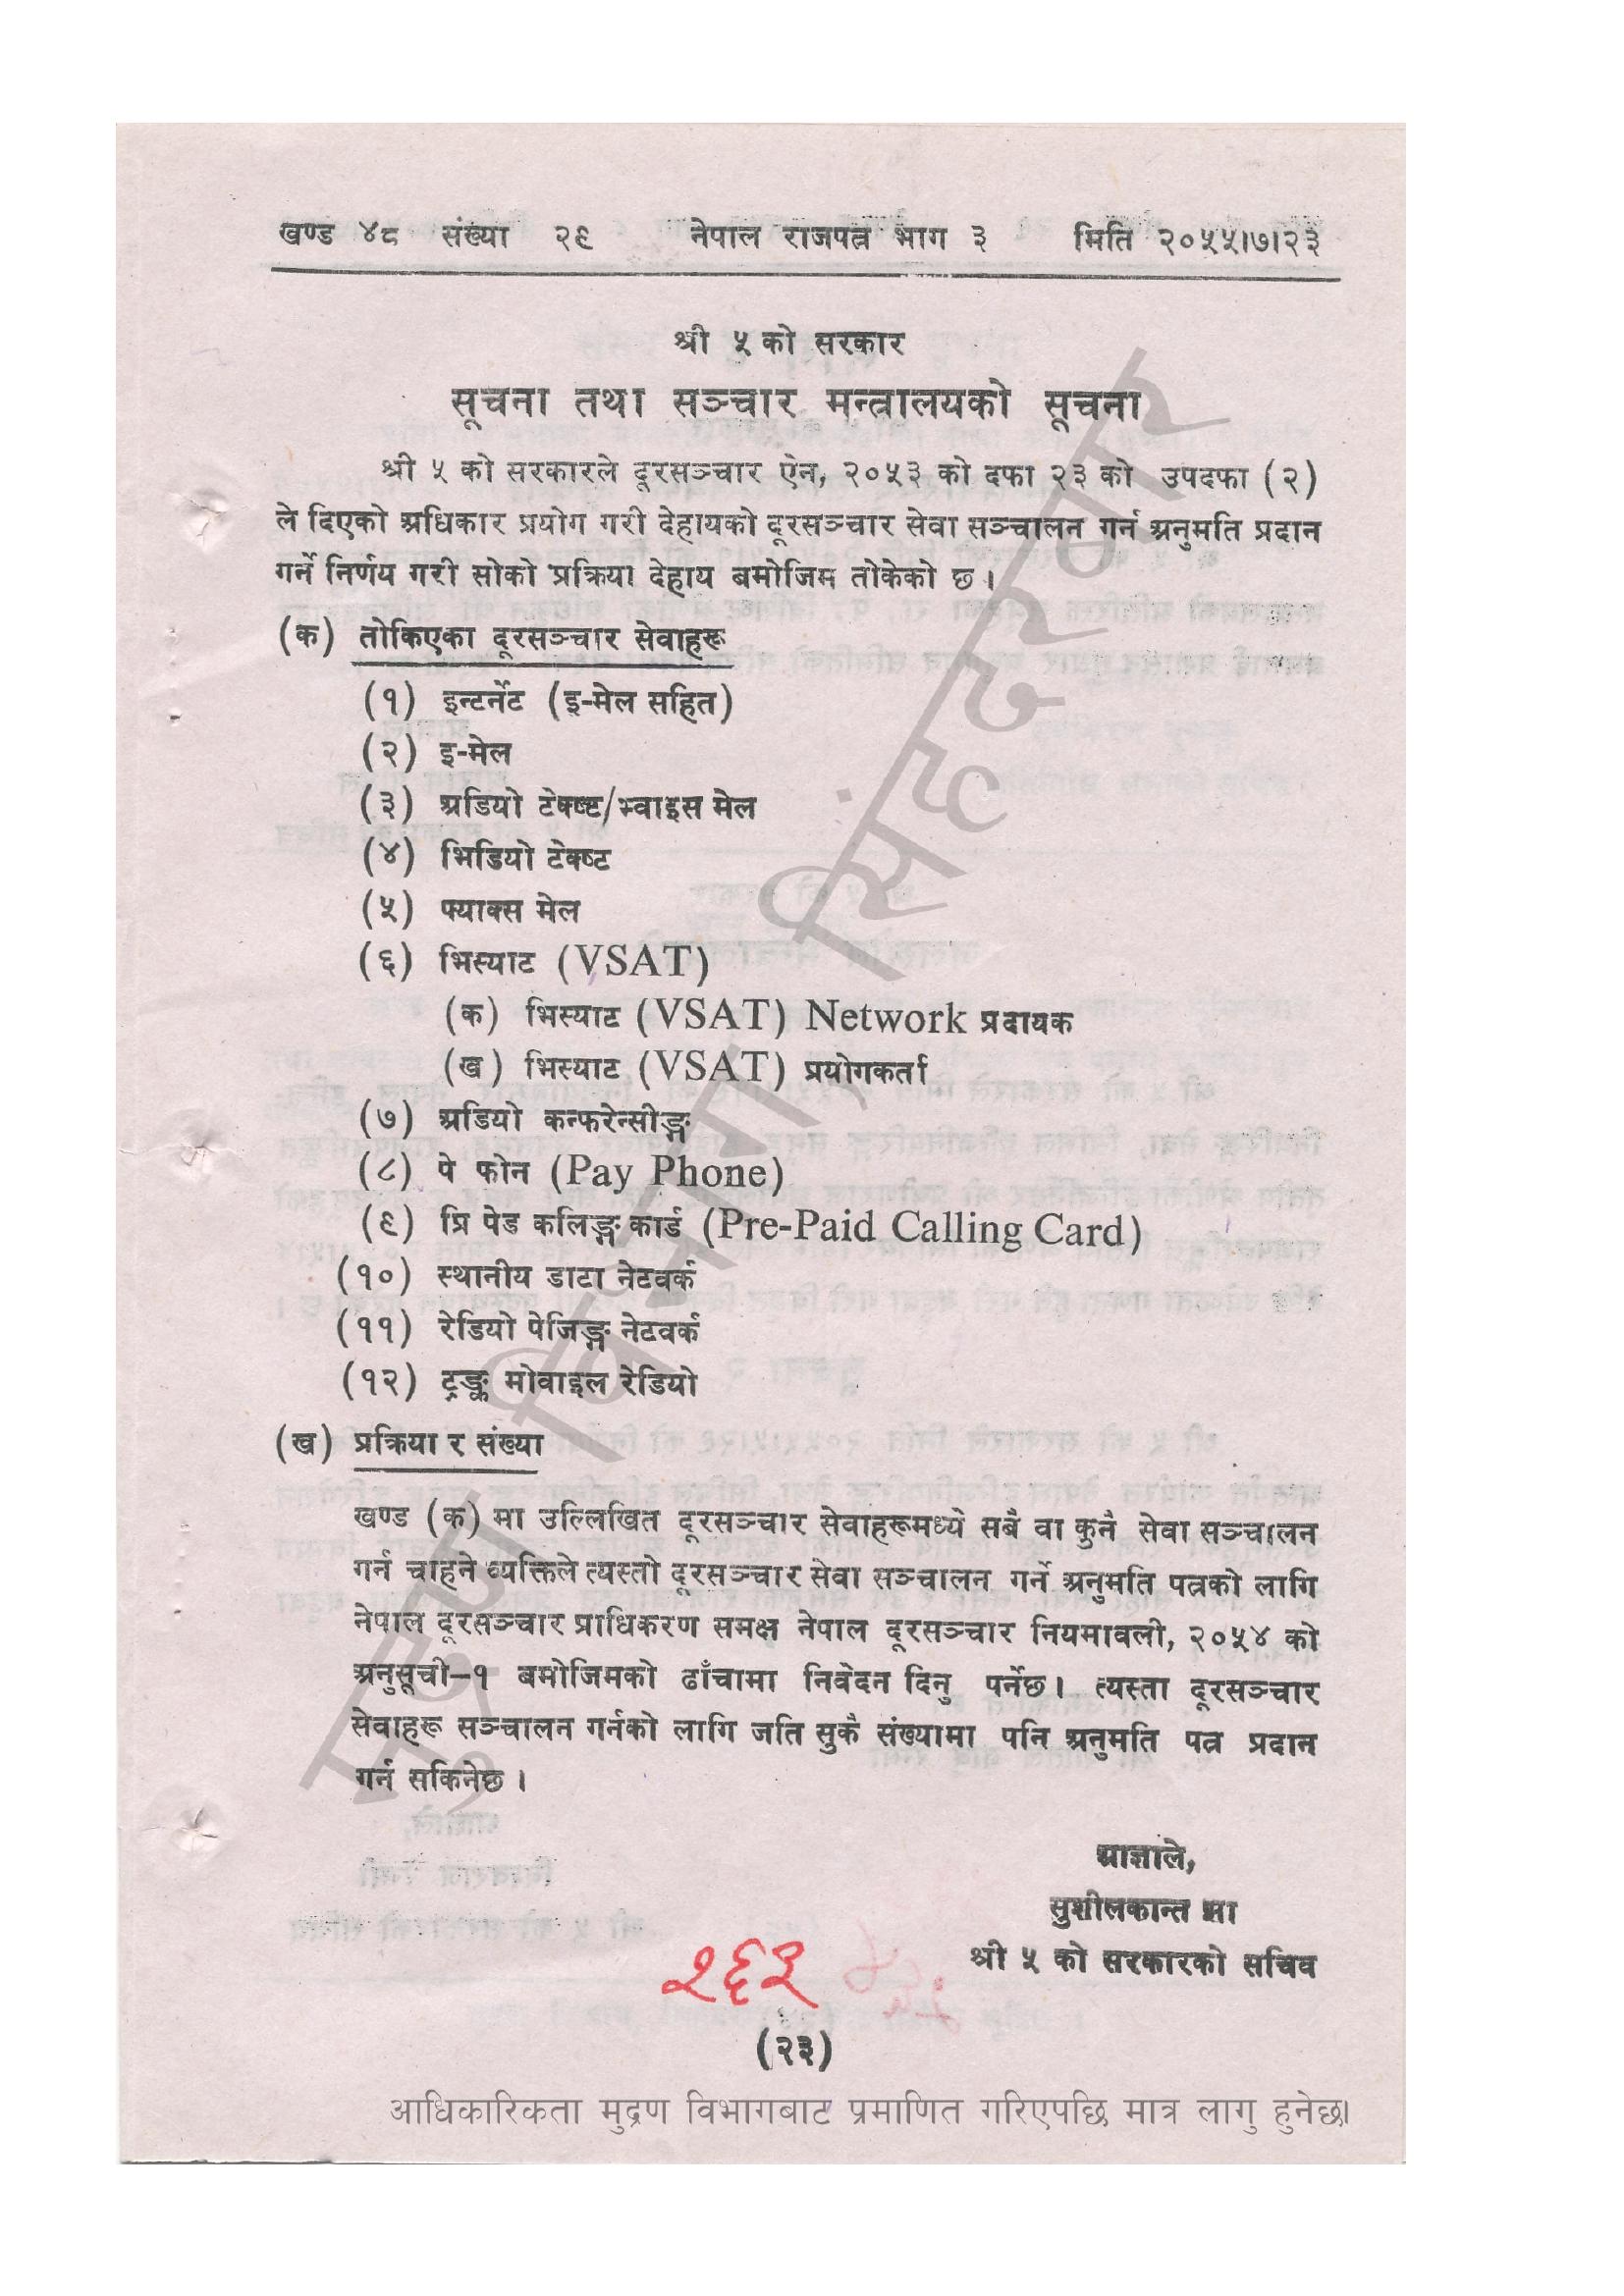 खण्ड ४८ संख्या २९ नेपाल राजपत्र भाग ३ मिति २०५५।७।२३
श्री ५ को सरकार
सूचना तथा सञ्चार मन्त्रालयको सूचना
श्री ५ को सरकारले दूरसञ्चार ऐन, २०५३ को दफा २३ को उपदफा (२)
ले दिएको अधिकार प्रयोग गरी देहायको दूरसञ्चार सेवा सञ्चालन गर्न अनुमति प्रदान
गर्ने निर्णय गरी सोको प्रक्रिया देहाय बमोजिम तोकेको छ ।
(क) तोकिएका दूरसञ्चार सेवाहरू
(१) इन्टर्नेट (इ-मेल सहित)
(२) इ-मेल
(३) अडियो टेक्ष्ट/भ्वाइस मेल
(४) भिडियो टेक्ष्ट
(५) फ्याक्स मेल
(६) भिस्याट (VSAT)
(क) भिस्याट (VSAT) Network प्रदायक
(ख) भिस्याट (VSAT) प्रयोगकर्ता
(७) अडियो कन्फरेन्सीङ्ग
(८) पे फोन (Pay Phone)
(९) प्रि पेड कलिङ्ग कार्ड (Pre-Paid Calling Card)
(१०) स्थानीय डाटा नेटवर्क
(११) रेडियो पेजिङ्ग नेटवर्क
(१२) ट्रङ्क मोवाइल रेडियो
(ख) प्रक्रिया र संख्या
खण्ड (क) मा उल्लिखित दूरसञ्चार सेवाहरूमध्ये सबै वा कुनै सेवा सञ्चालन
गर्न चाहने व्यक्तिले त्यस्तो दूरसञ्चार सेवा सञ्चालन गर्ने अनुमति पत्रको लागि
नेपाल दूरसञ्चार प्राधिकरण समक्ष नेपाल दूरसञ्चार नियमावली, २०५४ को
अनुसूची–१ बमोजिमको ढाँचामा निवेदन दिनु पर्नेछ । त्यस्ता दूरसञ्चार
सेवाहरू सञ्चालन गर्नको लागि जति सुकै संख्यामा पनि अनुमति पत्र प्रदान
गर्न सकिनेछ ।
आज्ञाले,
सुशीलकान्त झा
श्री ५ को सरकारको सचिव
२६३
(२३)
मुद्रण विभाग, सिंहदरबार
आधिकारिकता मुद्रण विभागबाट प्रमाणित गरिएपछि मात्र लागु हुनेछ।